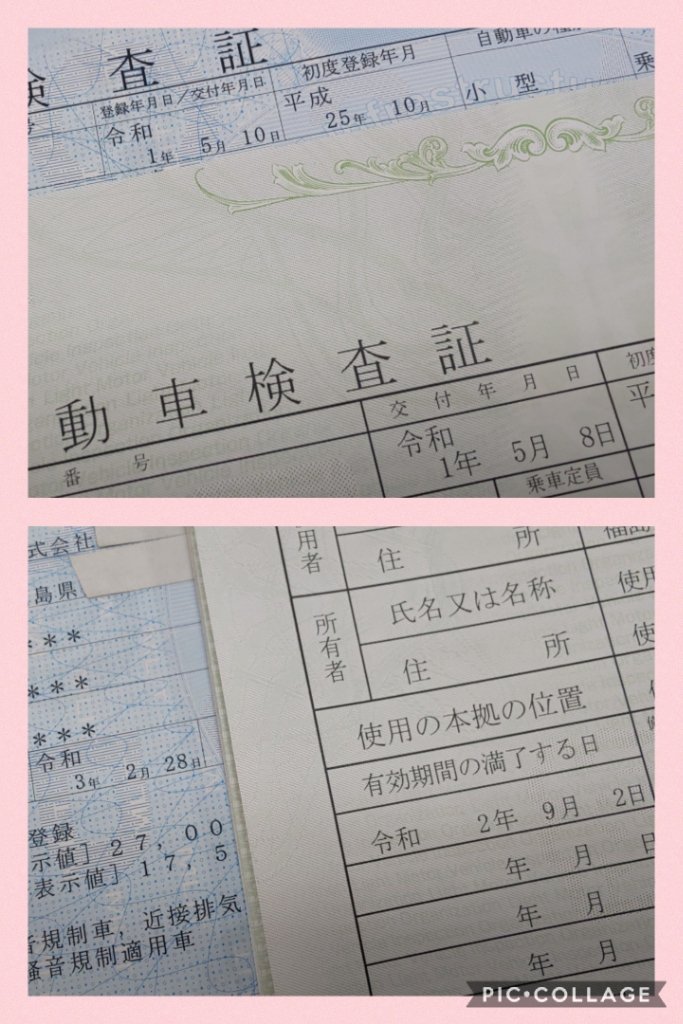 検査証
号 登録年月日/交付年月日 初度登録年月 自動車の種
令和 1年 5月 10日 平成 25年 10月 小型 乗
動車検査証
番号 交付年月日 初度
令和 1年 5月 8日 平
乗車定員
式会社
島県
***
***
***
令和 3年 2月 28日
登録
示値] 27,00
表示値] 17,5
音規制車,近接排気
騒音規制適用車
用者 住所
所有者 氏名又は名称 使用
住所 使
使用の本拠の位置
有効期間の満了する日
令和 2年 9月 2日
年 月 日
年 月
年 月
PIC•COLLAGE